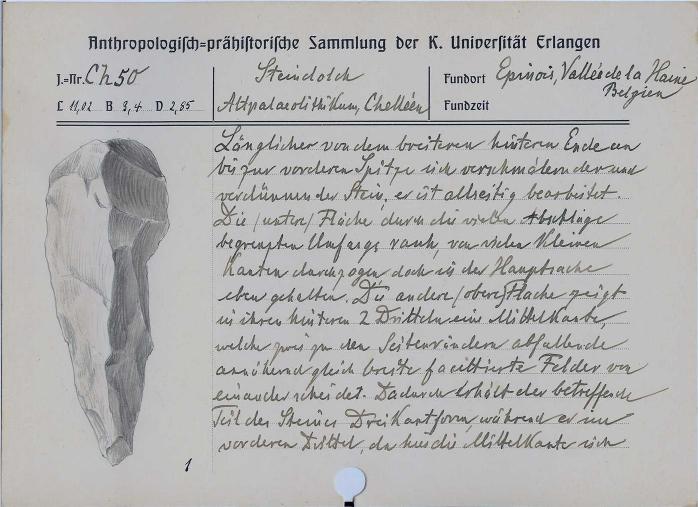 Anthropologisch=prähistorische Sammlung der K. Universität Erlangen
J.=Nr. Ch 50
Steindolch
Fundort Epinois, Vallée de la Haine
Belgien
L 11,02 B 3,4 D 2,85
Altpalaeolithikum, Chelléen
Fundzeit
Länglicher von dem breiteren hinteren Ende an
bis zur vorderen Spitze sich verschmälernder und
verdünnender Stein, er ist allseitig bearbeitet.
Die (untere) Fläche durch die vielen Abschläge
begrenzten Umfangs rauh, von vielen kleinen
Kanten durchzogen doch in der Hauptsache
eben gehalten. Die andere (obere) Fläche zeigt
in ihren hinteren 2 Dritteln eine Mittelkante,
welche zwei zu den Seitenrändern abfallende
annähernd gleich breite facettierte Felder von
einander scheidet. Dadurch erhält der betreffende
Teil des Steines Dreikantform, während er im
vorderen Drittel, da hier die Mittelkante sich
1